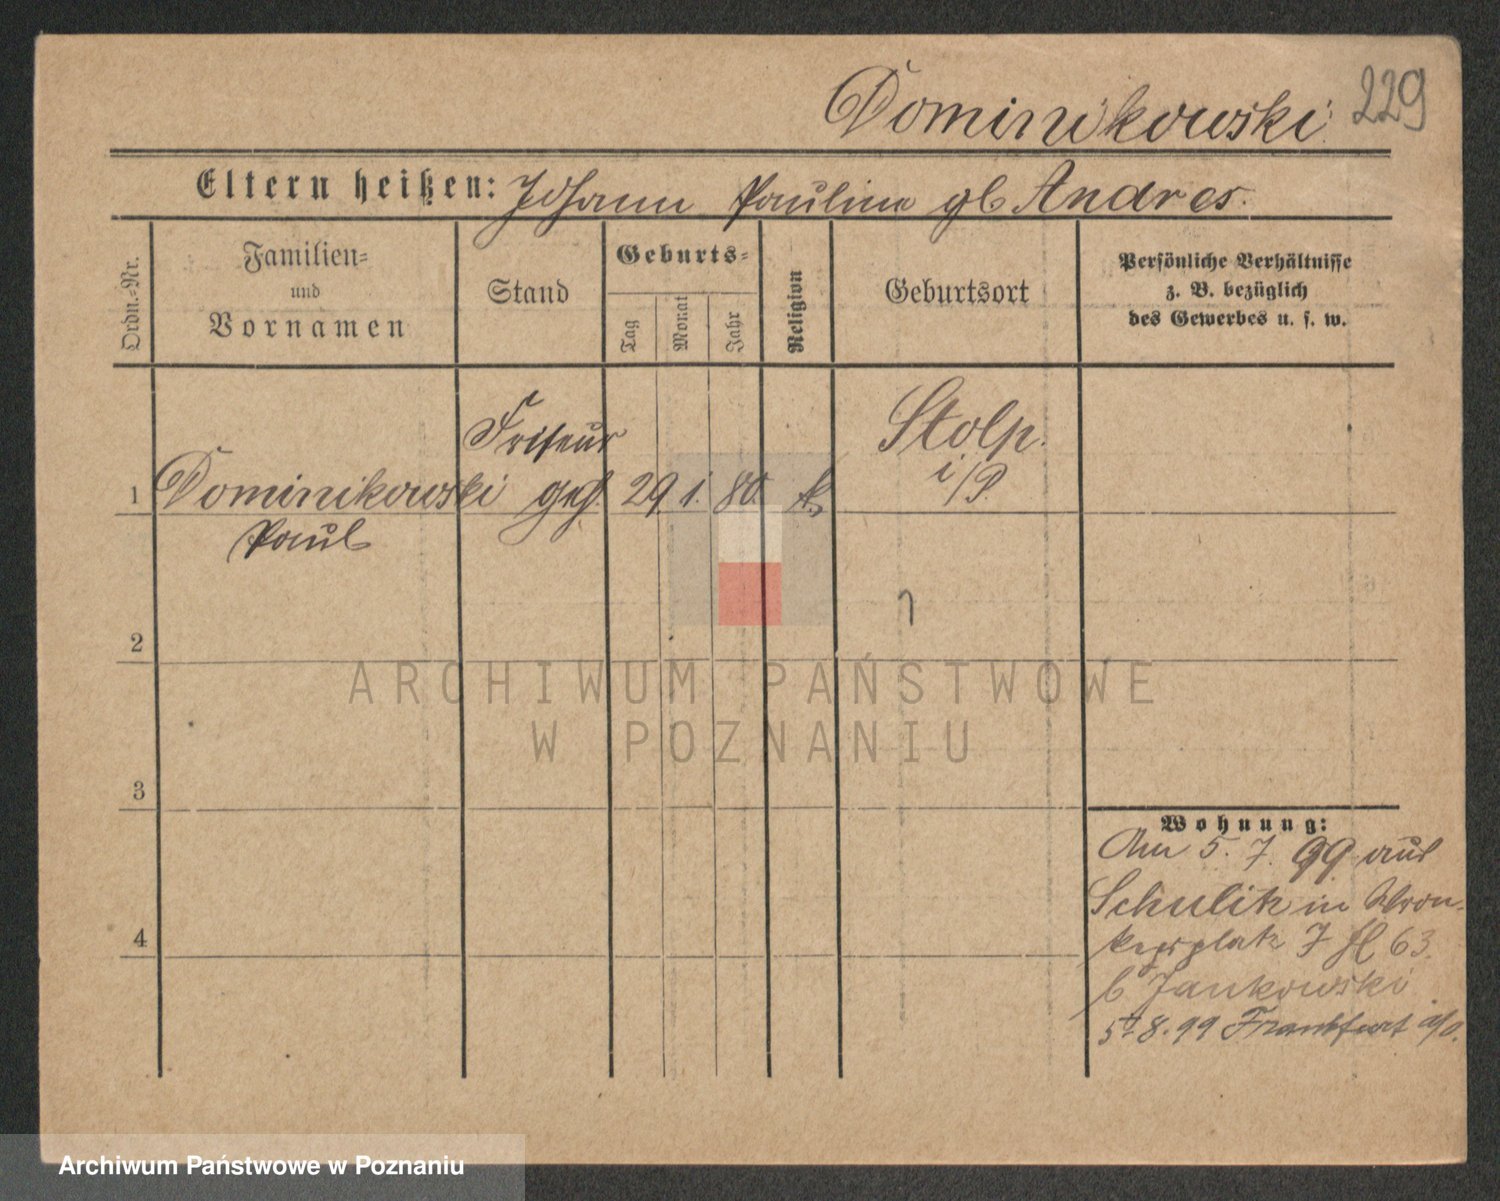 Dominikowski 229
Eltern heißen: Johann Pauline gb Andres.
Ordn.-Nr.
Familien-
und
Vornamen
Stand
Geburts-
Tag
Monat
Jahr
Religion
Geburtsort
Persönliche Verhältnisse
z. B. bezüglich
des Gewerbes u. s. w.
Friseur
Stolp.
i/P
1 Dominikowski geh. 29. 1. 80 k.
Paul
2
3
4
Wohnung:
Am 5. 7. 99 aus
Schulitz in Wron-
kerplatz 7 H 63.
b Jankowski
5t 8. 99 Frankfurt a/O.
ARCHIWUM PAŃSTWOWE
W POZNANIU
Archiwum Państwowe w Poznaniu